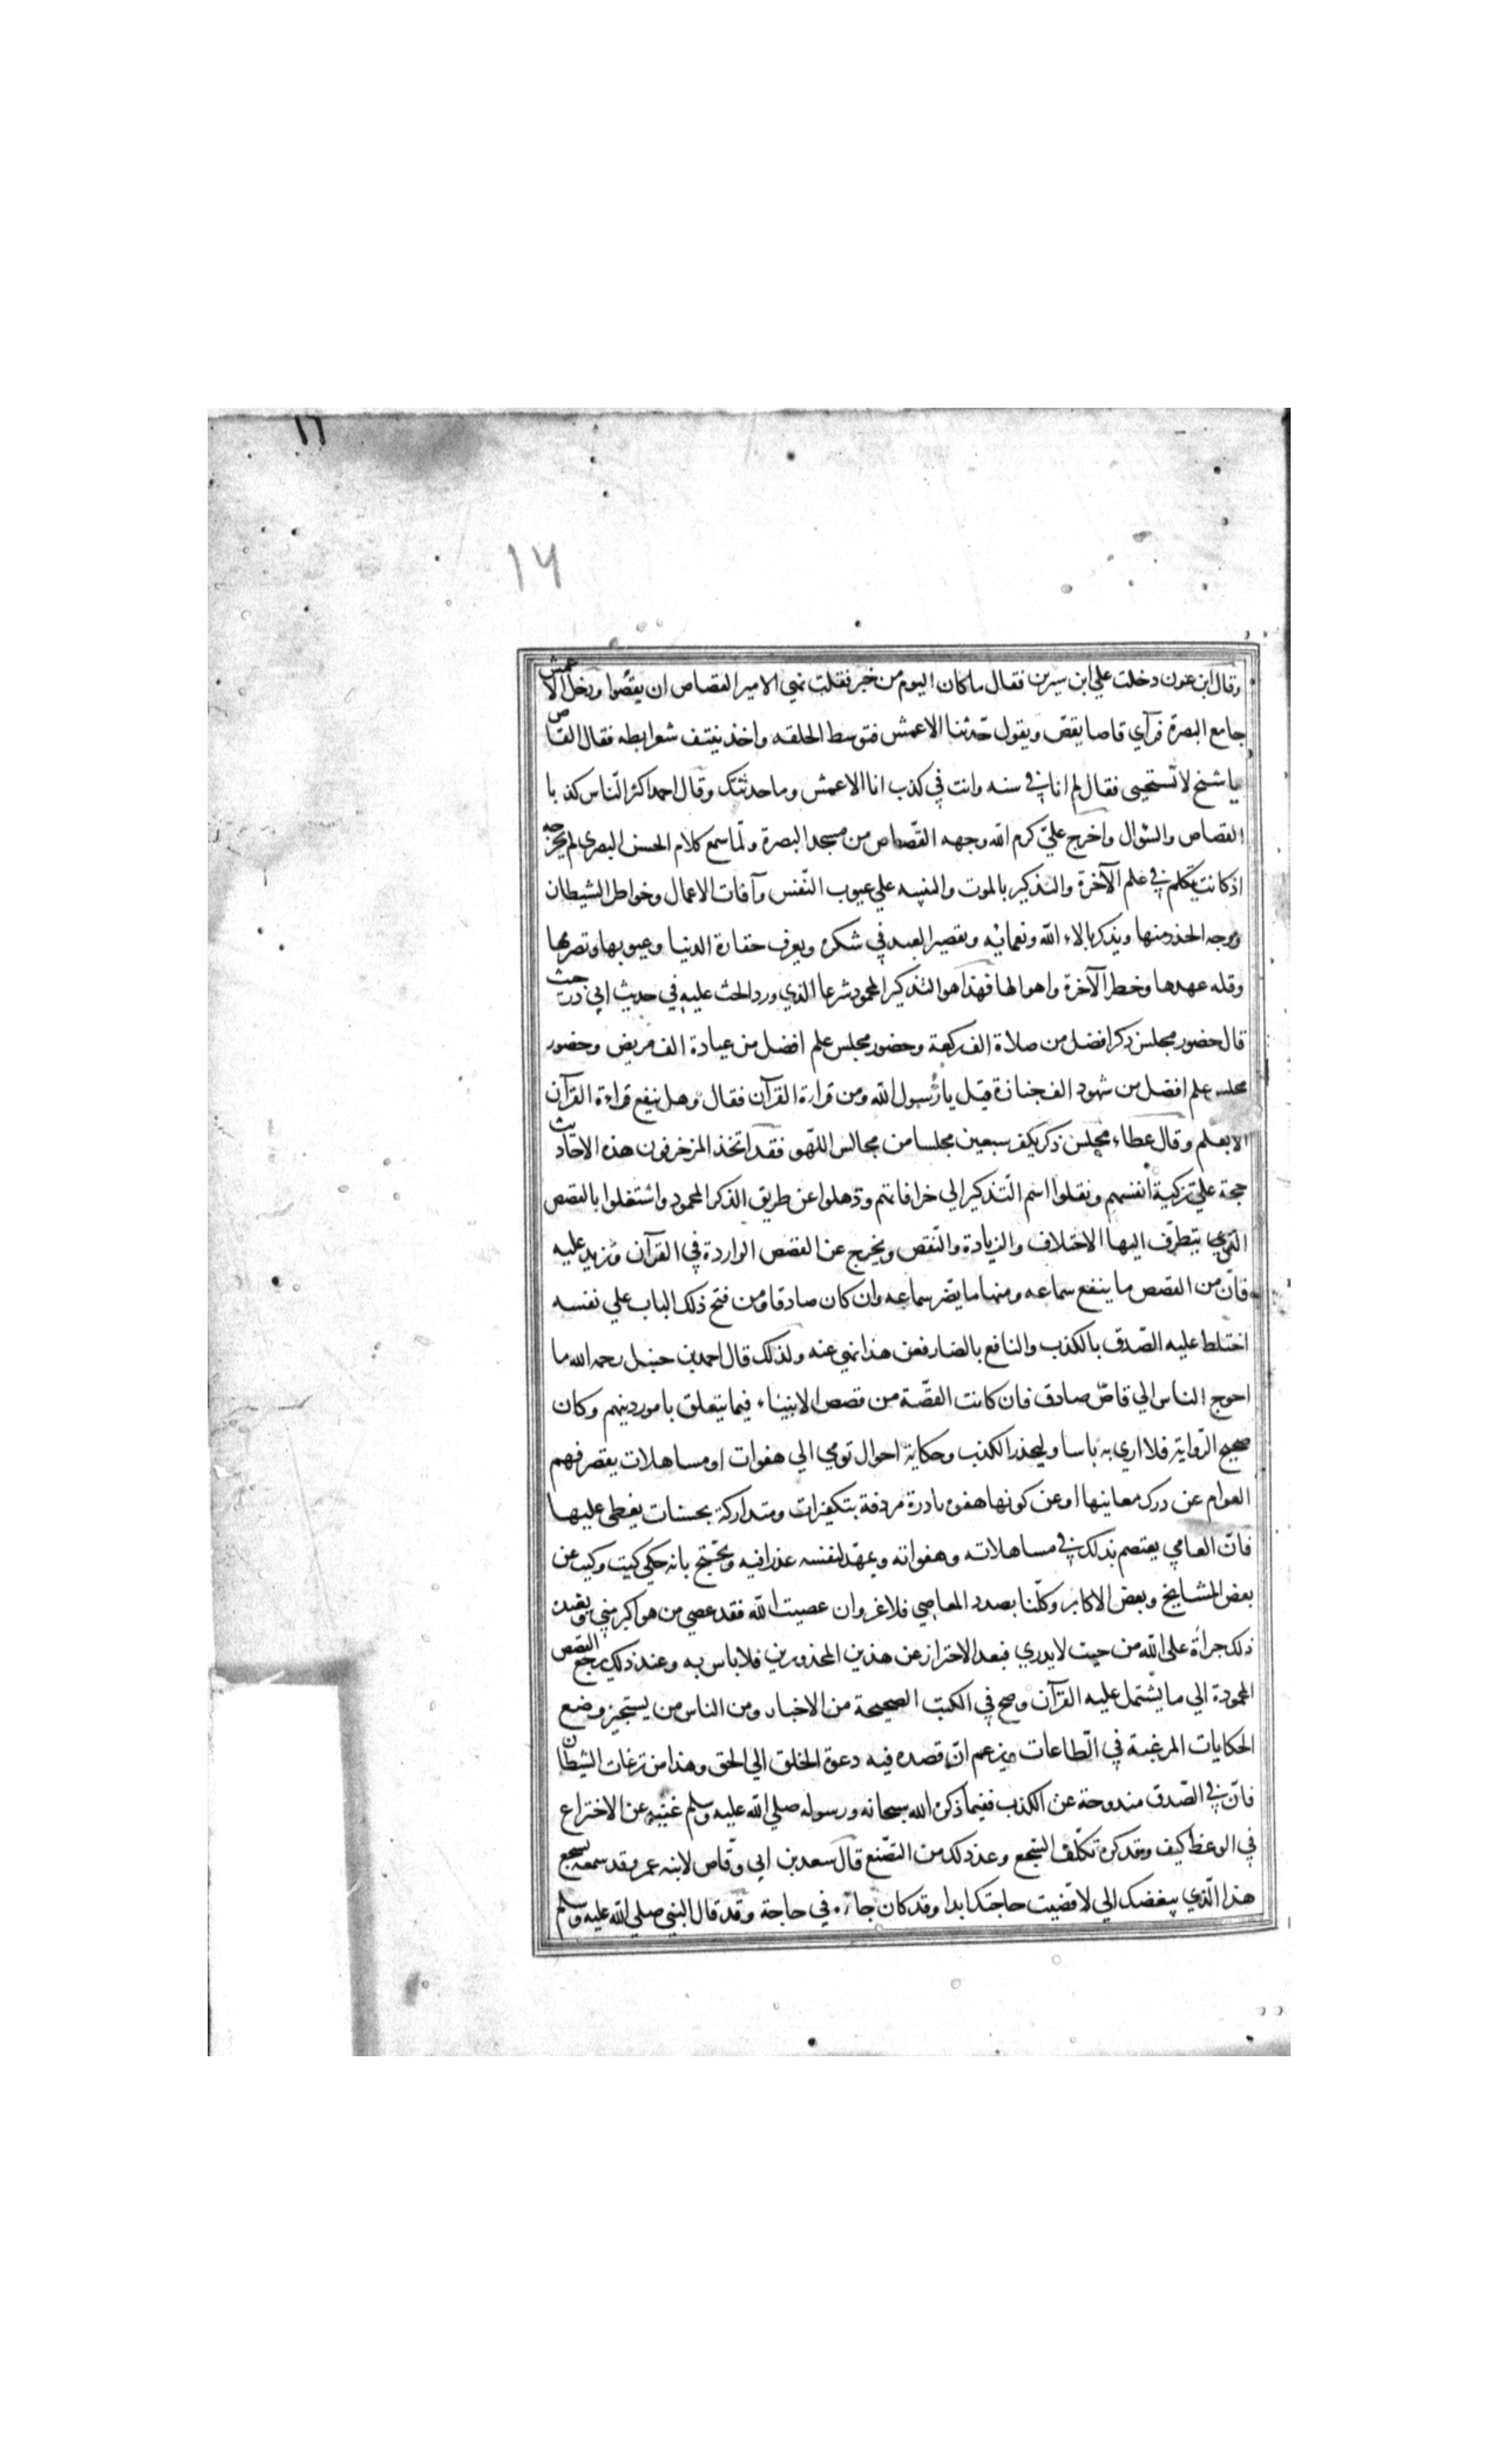 ١٦
١٦
وقال ابن عون دخلت علي ابن سيرين فقال ما كان اليوم من خبر فقلت نهي الامير القصاص ان يقصّوا ودخل الاعمش
جامع البصرة فرآي قاصا يقصّ ويقول حّدثنا الاعمش فتوسط الحلقه واخذ ينتف شعر ابطه فقال القاص
يا شيخ لا تستحيى فقال لم انا في سنه وانت في كذب انا الاعمش وما حدثتك وقال احمد اكثر الناس كذبا
القصاص والسّوال واخرج عليّ كرم الله وجهه القصّاص من مسجد البصرة ولّما سمع كلام الحسن البصري لم يخرجه
اذ كانت يتكلم في علم الآخرة والتذكير بالموت والتنبيه علي عيوب النّفس وآفات الاعمال وخواطر الشيطان
ووجه الحذر منها ويذكر بالاء الله ونعمائه وتقصير العبد في شكره ويعرف حقارة الدنيا وعيوبها وتصرمها
وقله عهدها وخطر الآخرة واهوالها فهذا هو التذكير المحمود شرعا الذي ورد الحث عليه في حديث ابي ذر حيث
قال حضور مجلس ذكر افضل من صلاة الف ركعة وحضور مجلس علم افضل من عيادة الف مريض وحضور
مجلس علم افضل من شهود الف جنازة قيل يا رسول الله ومن قراءة القرآن فقال وهل ينفع قراءة القرآن
الا بعلم وقال عطاء مجلس ذكر يكفر سبعين مجلسا من مجالس اللهو فقد اتخذ المزخرفون هذه الاحاديث
حجة علي تزكية انفسهم ونقلوا اسم التّذكير الي خرافاتهم وذهلوا عن طريق الذكر المحمود واشتغلوا بالقصص
التي يتطرّف اليها الاختلاف والزيادة والنّقص ويخرج عن القصص الواردة في القرآن وتزيد عليه
فانّ من القصص ما ينفع سماعه ومنها ما يضر سماعه وان كان صادقا ومن فتح ذلك الباب علي نفسه
اختلط عليه الصّدق بالكذب والنافع بالضار فعن هذا نهي عنه ولذلك قال احمد بن حنبل رحمه الله ما
احوج الناس الي قاصّ صادق فان كانت القصّة من قصص الانبياء فيما يتعلق بامور دينهم وكان
صحيح الرّواية فلا اري به باسا وليحذر الكذب وحكاية احوال تومي الي هفوات او مساهلات يقصر فهم
العوام عن درك معانيها او عن كونها هفوة نادرة مردفة بتكفيرات ومتداركة بحسنات يغطى عليها
فانّ العامي يعتصم بذلك في مساهلاته وهفواته ويمهّد لنفسه عذرا فيه ويحّتج بانه حكي كيت وكيت عن
بعض المشايخ وبعض الاكابر وكلّنا بصدد المعاصي فلا غرو ان عصيت الله فقد عصي من هو اكبر مني ويفيده
ذلك جراءة على الله من حيث لا يدري فبعد الاحتراز عن هذين المحذورين فلا باس به وعند ذلك يرجع القصص
المحمودة الي ما يشتمل عليه القرآن وصح في الكتب الصحيحة من الاخبار ومن الناس من يستجيز وضع
الحكايات المرغبة في الطّاعات ويزعم انّ قصده فيه دعوة الخلق الي الحق وهذا من نزغات الشيطان
فانّ في الصّدق مندوحة عن الكذب ففيما ذكره الله سبحانه ورسوله صلي الله عليه وسلم غنيه عن الاختراع
في الوعظ كيف وقد كره تكلّف السّجع وعد ذلك من التصّنع قال سعد بن ابي وقّاص لابنه عمر وقد سمعه يسجع
هذا الّذي يبغضك الي لا قضيت حاجتك ابدا وقد كان جاءه في حاجة وقد قال النبي صلي الله عليه وسلم